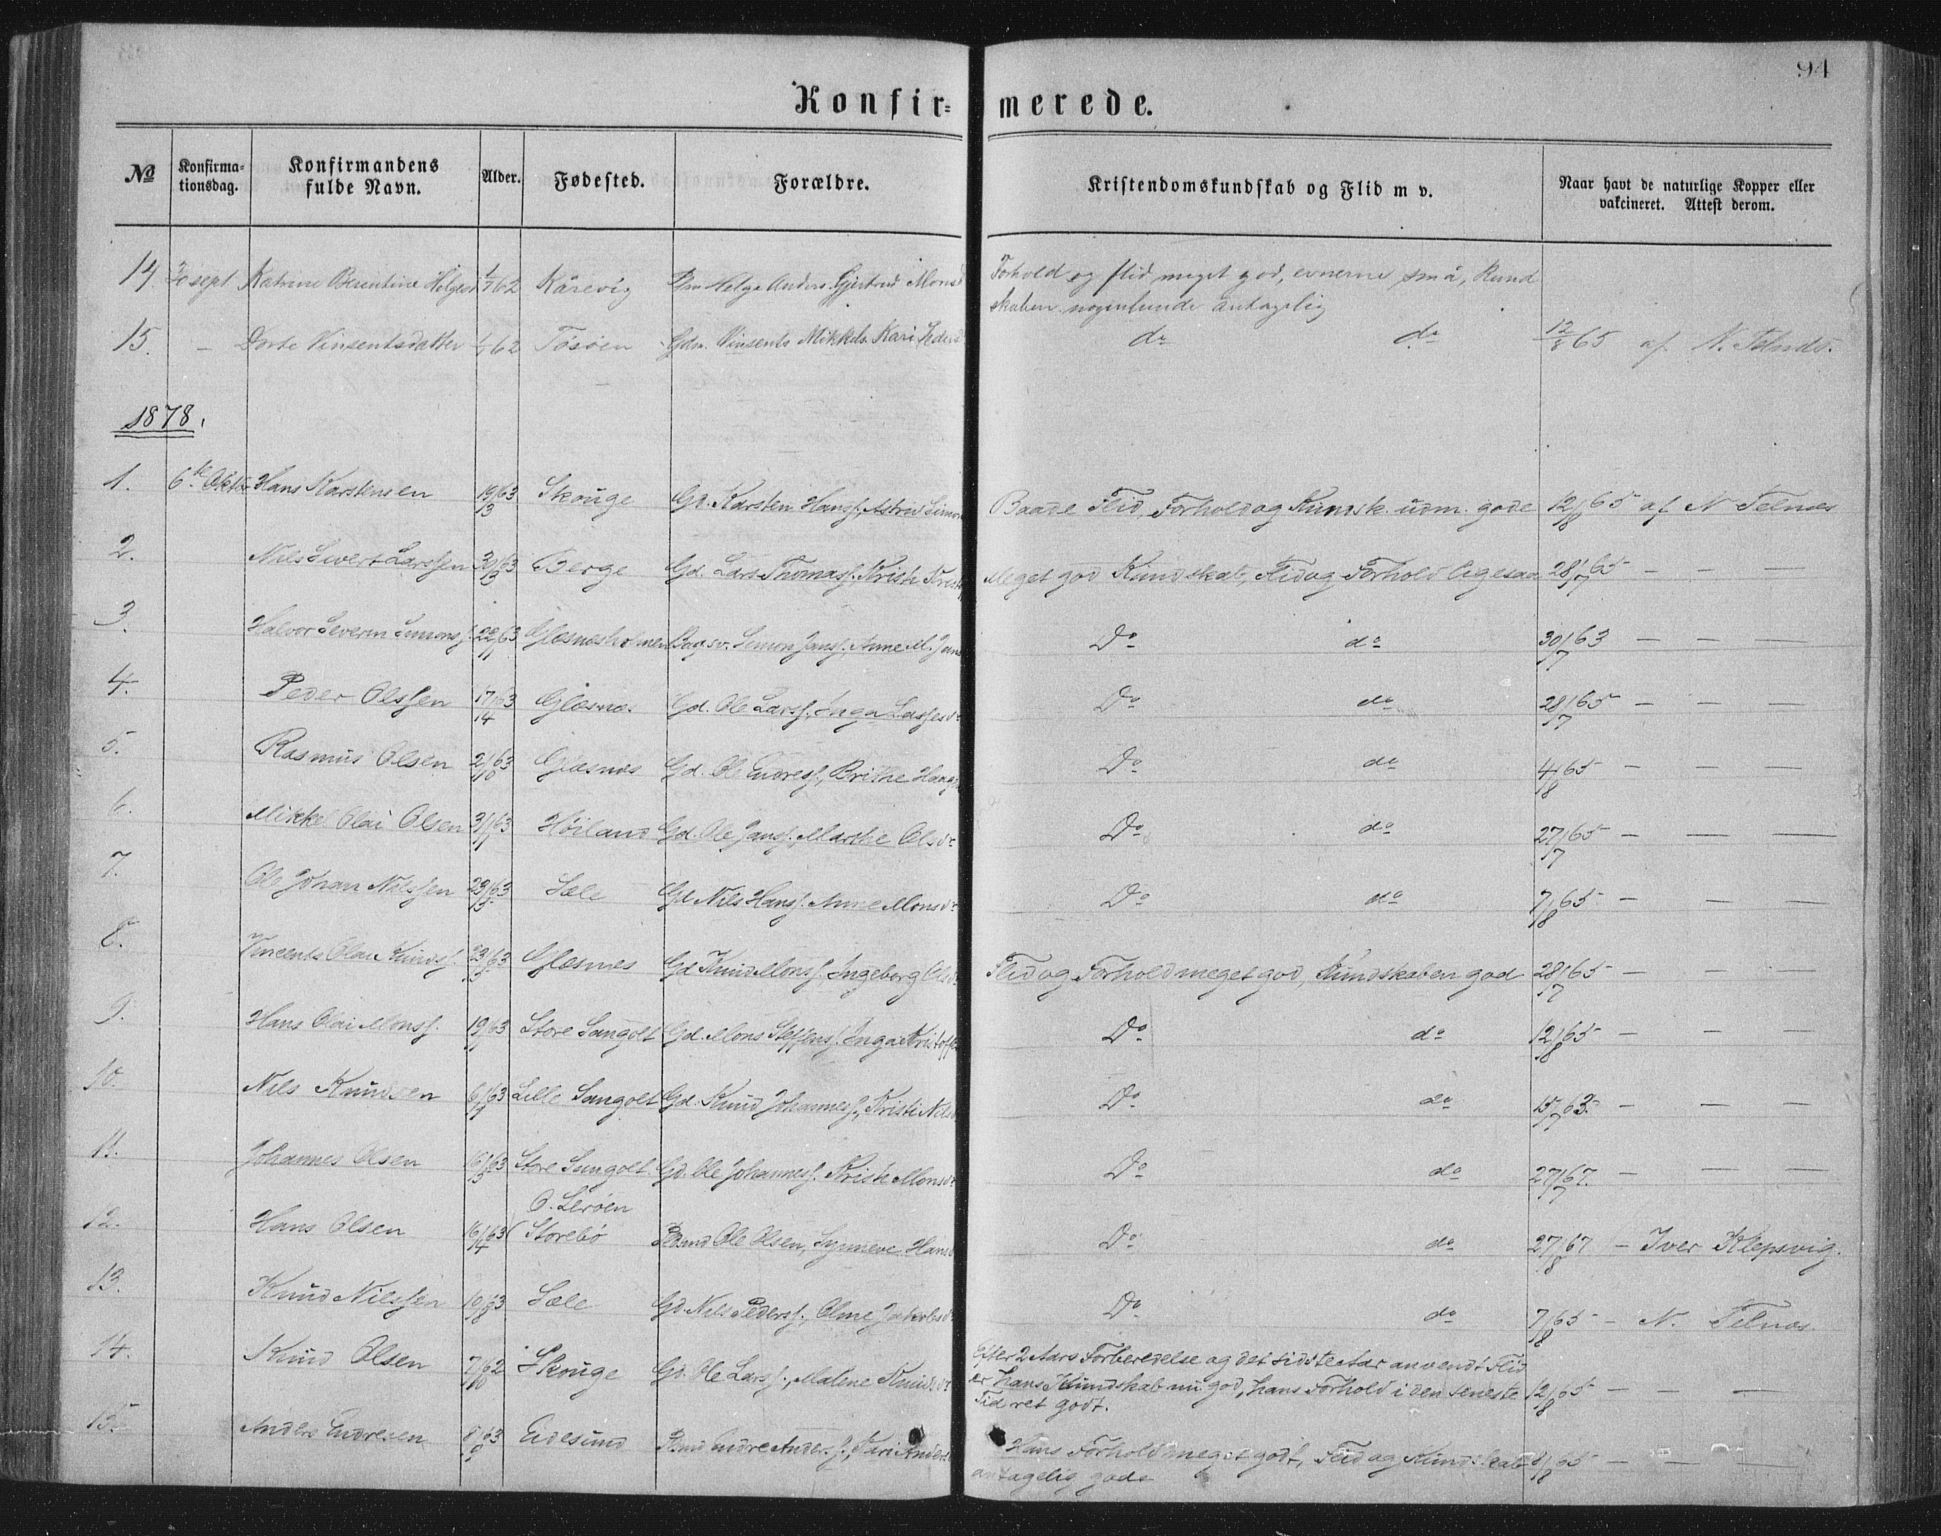 94
Konfir- merede.
№ Konfirma-tionsdag. Konfirmandens fulde Navn. Alder. Fødested. Forældre. Kristendomskundskab og Flid m v. Naar havt de naturlige Kopper eller vakcineret. Attest derom.
14 sept Katrine Berentine 62 Kårevig Helge Anders. Gjertrud Mons Forhold og flid meget god, evnerne små, Kund
skaben nogenlunde antagelig
15. – Dorte Vinsentsdatter 62 Tøsøen Gdm. Vinsents Mikkels. Kari do do 12/8 65 af N.
1878.
1. 6te Oktbr Hans Karstensen 19/3 63 Skouge Gd. Karsten Hanss., Astrid Simon Baade Flid, Forhold og Kundsk. udm. gode 12/8 65 af N Telnæs
2. Nils Sivert Larssen 30/3 63 Berge Gd. Lars Thomass. Kristi Meget god Kundskab, Flid og Forhold ligesaa 28/7 65 – – –
3. Halvor Severin Simonss. 22/11 63 Glæsnesholmen Simon Janss., Anne M. Jans Do do 30/7 63 – – –
4. Peder Olssen 17/ 63 Glæsnes Gd. Ole Larss., Inga Do do 28/7 65 – – –
5. Rasmus Olsen 2/10 63 Glæsnes Gd. Ole Endress., Brithe Do do 4/8 65 – – –
6. Mikkel Olai Olsen 31/ 63 Høiland Gd. Ole Janss., Marthe Olsdr Do do 27/7 65 – – –
7. Ole Johan Nilssen 63 Sæle Gd Nils Hanss. Anne Monsdr Do do 7/8 65 – – –
8. Vincents Olai Knudss. 23/ 63 Glæsnes Gd Knud Monss., Ingeborg Olsd. Flid og Forhold meget god, Kundskaben god 28/7 65 – – –
9. Hans Olai Monss. 19/ 63 Store Sangolt Gd. Mons Steffenss. Inga Kristoff Do do 12/8 65 – – –
10. Nils Knudsen 6/ 63 Lille Sangolt Gd. Knud Johanness., Kristi Nils Do do 15/7 63. – – –
11. Johannes Olsen 16/3 63 Store Sangolt Gd. Ole Johanness. Kristi Monsdr Do do 27/7 67. – – –
O. Lerøen
12. Hans Olsen 16/ 63 ( Storebø Ole Olsen, Synneve Hansd Do do 27/8 67 – Iver Klepsvig.
13. Knud Nilssen 10/ 63 Sæle Gd. Nils Pederss., Oline Jakobsd. Do do 7/8 65 – N. Telnæs
14. Knud Olsen 7/10 62 Skouge Gd. Ole Larss., Malene Knudsdr Efter 2 Aars Forberedelse og det sidste Aar anvendt Flid
er hans Kundskab nu god, hans Forhold i den seneste 12/8 65 – – –
Tid ret godt.
15. Anders Endresen 8/ 63 Eidesund Endre Anderss., Kari Anders Hans Forhold meget godt, Flid og Kundskab 8/8 65 – – –
antagelig gode